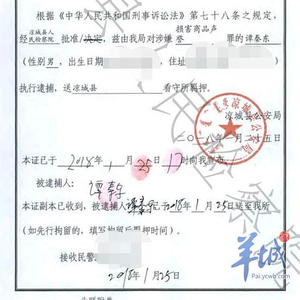 根据《中华人民共和国刑事诉讼法》第七十八条之规定,
经凉城县人民检察院批准/决定,兹由我局对涉嫌损害商品声誉罪的谭秦东
(性别男,出生日期
执行逮捕,送凉城县 看守所羁押。
凉城县公安局
二〇一八年一月二十五日
本证已于2018年1月25日17时向我宣布。
被逮捕人:谭秦东
本证副本已收到,被逮捕人谭秦东已于2018年1月25日送至我所
(如先行拘留的,填写拘留后羁押时间)。
接收民警:
2018年1月25日
羊城派
Pai.ycwb.com